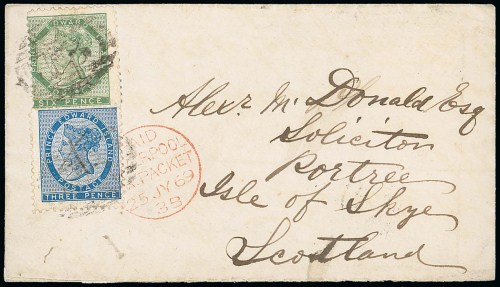 EDWARD
SIX PENCE
PRINCE EDWARD ISLAND
POSTAGE
THREE PENCE
PACKET
25 JY 69
3 B
Alexr Mc Donald Esq
Solicitor
Portree
Isle of Skye
Scotland